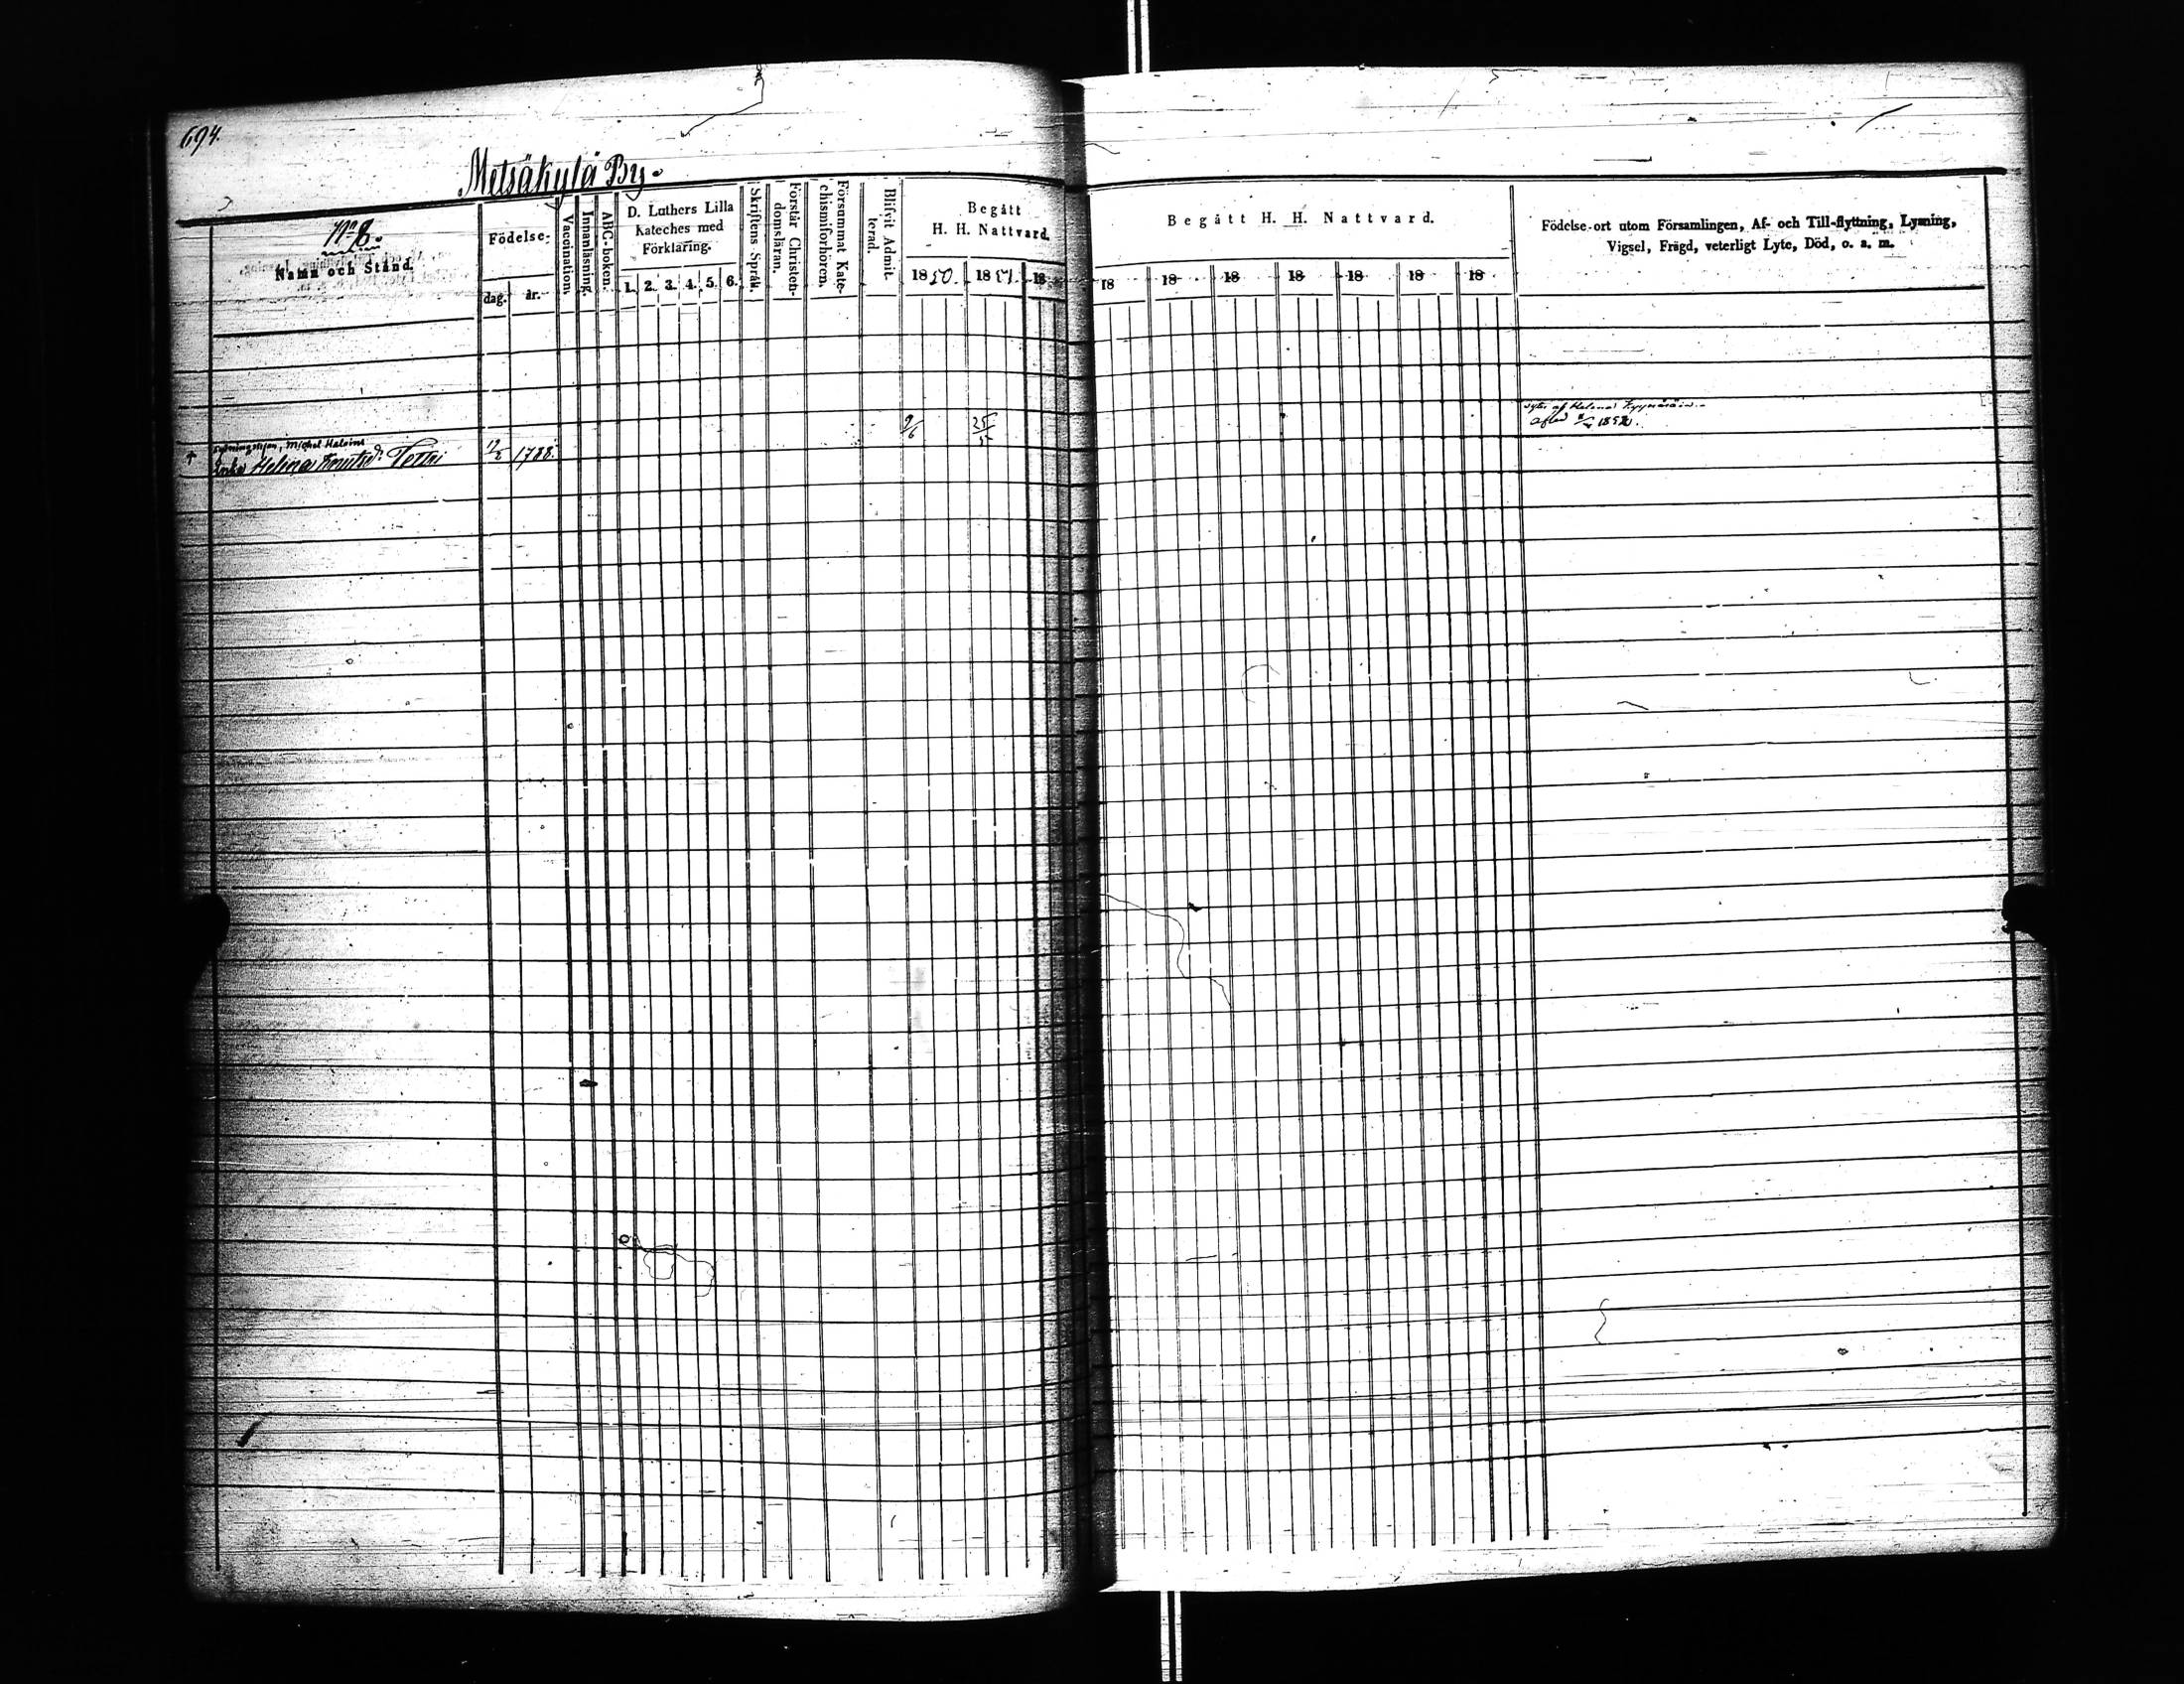 694.
Metsäkylä By.
No 8.
Namn och Stånd.
Födelse-
dag.
år.
Vaccination.
Innanläsning.
ABC-boken.
D. Luthers Lilla
Kateches med
Förklaring.
1. 2. 3. 4. 5. 6.
Skriftens Språk.
Förstår Christen-
domsläran.
Försummat Kate-
chismiförhören.
Blifvit Admit-
terad.
Begått
H. H. Nattvard.
1850. 1851. 18
Begått H. H. Nattvard.
18 18 18 18 18 18 18
Födelse-ort utom Församlingen, Af- och Till-flyttning, Lysning,
Vigsel, Frägd, veterligt Lyte, Död, o. a. m.
Michel
† Enka Helena 1788.
9/6 25/5
af Helena
1852.